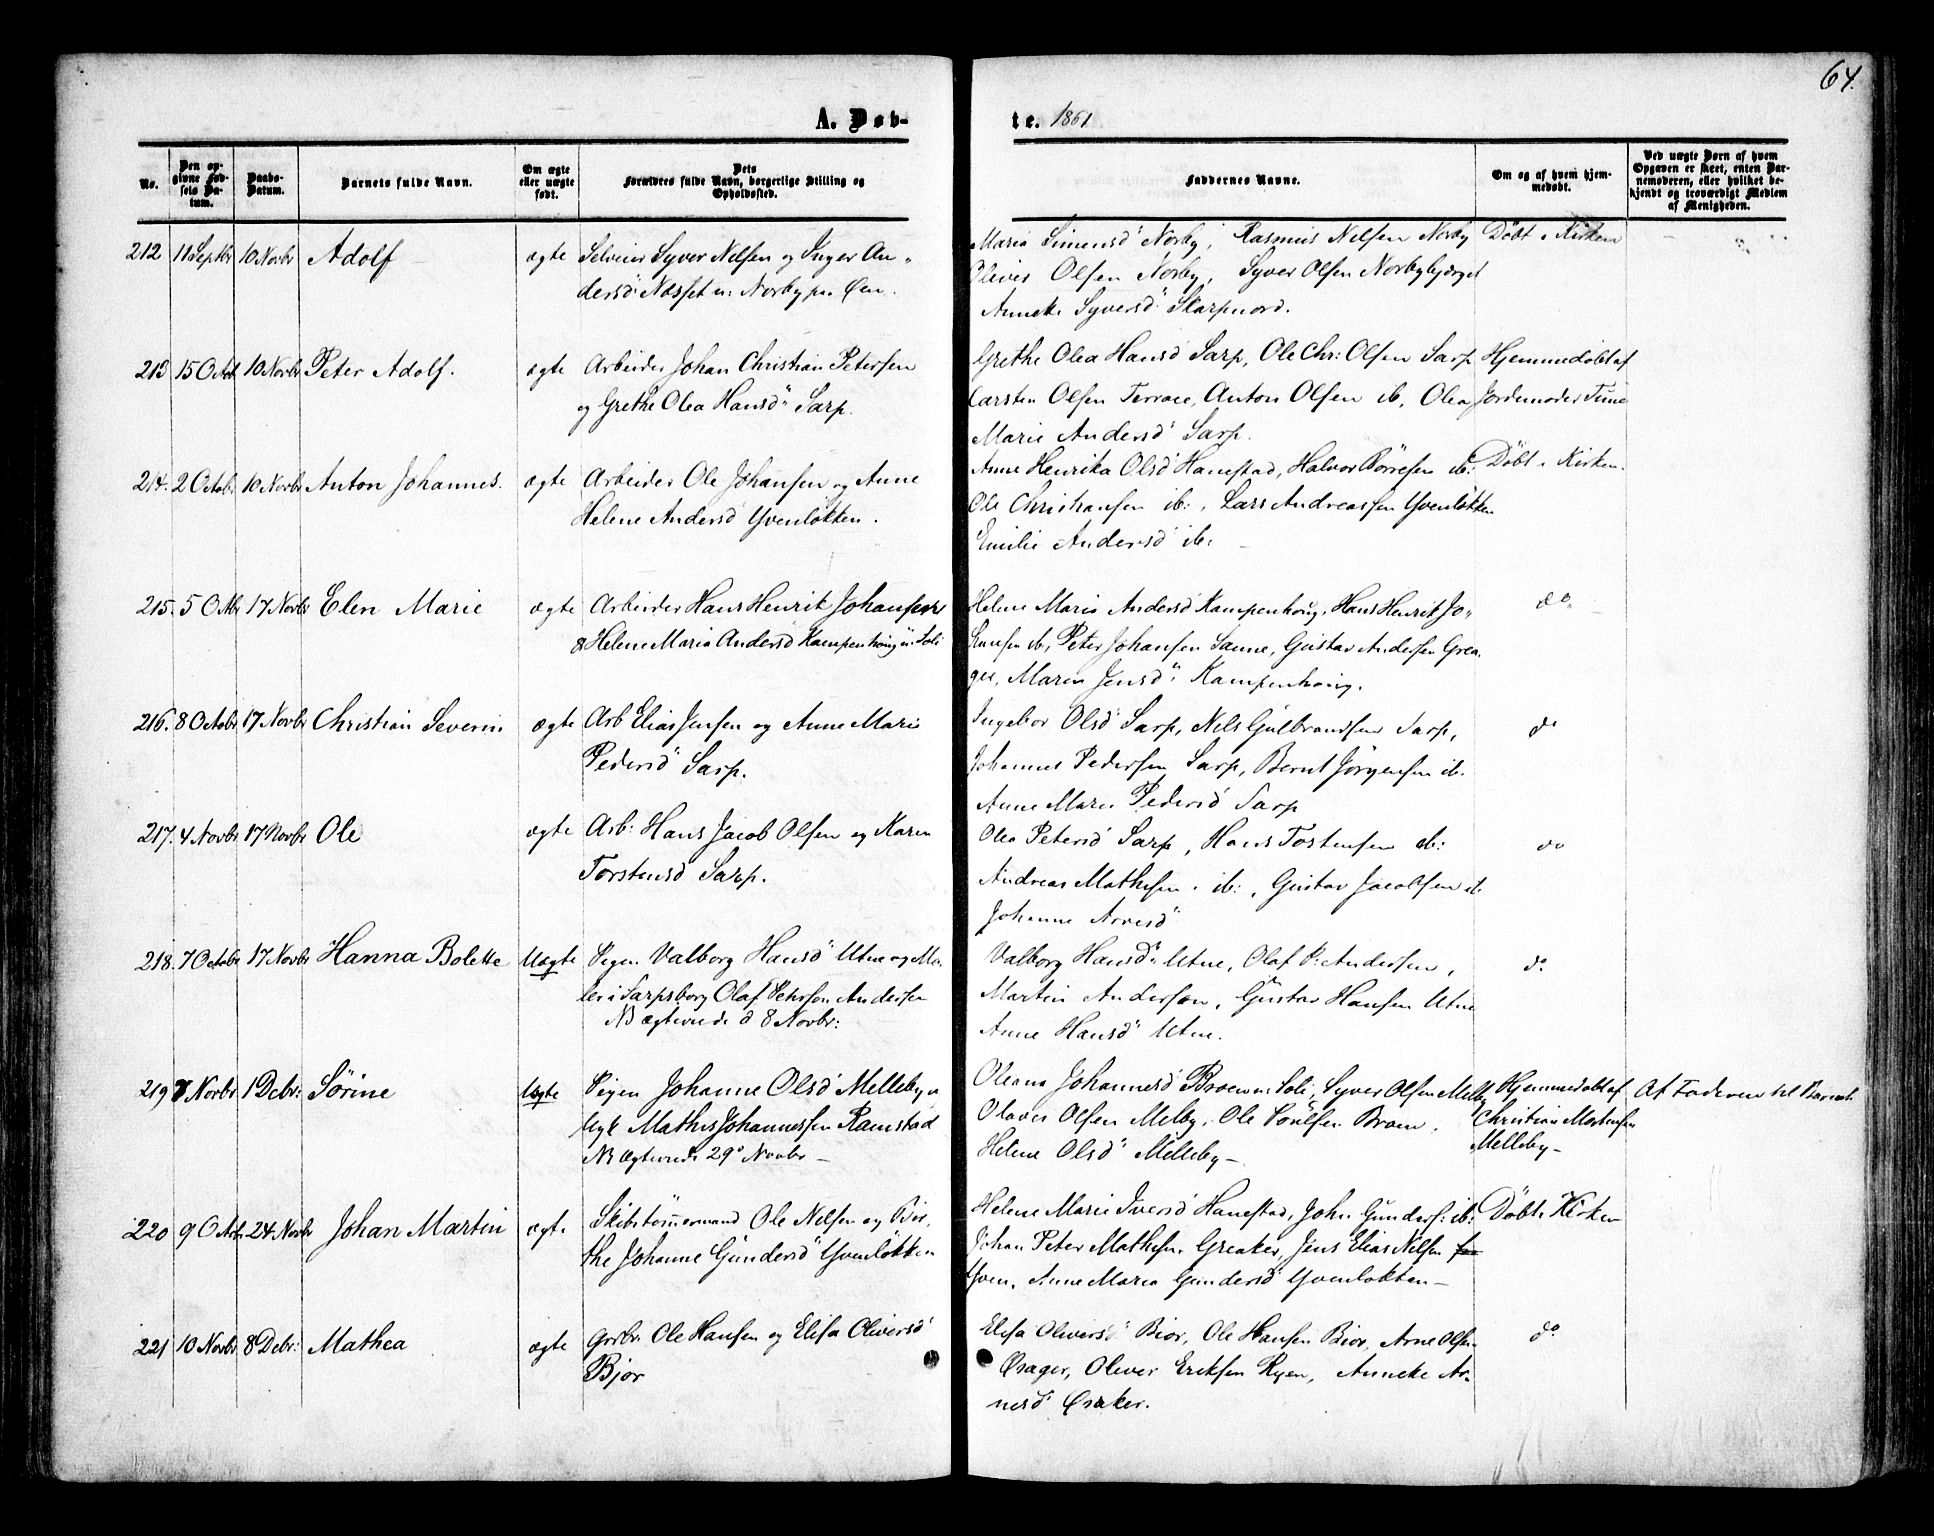 64.
A. Døb-
te. 1861
No.
Den op-
givne Fød-
sels Da-
tum.
Daabs-
Datum.
Barnets fulde Navn.
Om ægte
eller uægte
født.
Dets
Forældres fulde Navn, borgerlige Stilling og
Opholdssted.
Faddernes Navne.
Om og af hvem hjem-
medøbt.
Ved uægte Børn af hvem
Opgaven er skeet, enten Bar-
nemoderen, eller hvilket be-
kjendt og troværdigt Medlem
af Menigheden.
212 11 Septbr 10 Novbr Adolf ægte Selveier Syver Nilsen og Inger An-
dersd: Næsset u: Norby paa Øen.
Maria Simensd Norby, Rasmus Nilsen Norby
Oliver Olsen Norby, Syver Olsen Norbybjerget
Anneke Syversd" Skarpnord.
Döbt i Kirken
213 15 Octbr 10 Novbr Peter Adolf. ægte Arbeider Johan Christian Petersen
og Grethe Olea Hansd" Sarp.
Grethe Olea Hansd Sarp, Ole Chr: Olsen Sarp
Carsten Olsen Terrace, Anton Olsen ib, Olea
Marie Andersd" Sarp.
Hjemmedöbt af
Jordemoder Tune
214. 2 Octobr 10 Novbr Anton Johannes. ægte Arbeider Ole Johansen og Anne
Helene Andersd Yvenlökken.
Anne Henrika Olsd Hanestad, Halvor Börresen ib:
Ole Christiansen ib:, Lars Andreassen Yvenlökken
Emilie Andersd ib:
Döbt i Kirken.
215. 5 Octbr 17 Novbr Elen Marie ægte Arbeider Hans Henrik Johansen
& Helene Maria Andersd Kampenhoug u: Soli
Helene Maria Andersd Kampenhoug, Hans Henrik Jo-
hansen ib, Peter Johansen Sanne, Gustav Andersen Grea-
ger, Maren Jensd" Kampenhoug.
do.
216. 8 Octobr 17 Novbr Christian Severin ægte Arb Elias Jensen og Anne Marie
Pedersd" Sarp.
Ingebor Olsd" Sarp, Nils Gulbrandsen Sarp,
Johannes Pedersen Sarp, Bernt Jörgensen ib.
Anne Marie Pedersd Sarp
do
217. 4 Novbr 17 Novbr Ole ægte Arb: Hans Jacob Olsen og Karen
Torstensd Sarp.
Olea Petersd Sarp, Hans Tostensen ib:
Andreas Mathesen. ib:, Gustav Jacobsen ib
Johanne Arvesd"
do
218. 7 Octobr 17 Novbr Hanna Bolette Uægte Pigen Valborg Hansd" Utne og Ma-
ler i Sarpsborg Olaf Petersen Andersen
NB ægteviede d 8 Novbr:
Valborg Hansd" Utne, Olaf P: Andersen,
Martin Andersen, Gustav Hansen Utne
Anne Hansd" Utne.
do.
219 7 Novbr 1 Debr: Sörine Uægte Pigen Johanne Olsd Melleby u
Ugk Mathis Johannessen Ramstad
NB ægteviede 29° Novbr —
Oleana Johannesd Broen u: Soli, Syver Olsen Melby
Olaves Olsen Melby, Ole Poulsen Broen.
Helene Olsd" Melleby —
Hjemmedöbt af
Christian Mortensen
Melleby —
Af Faderen til Barnet
220 9 Octbr 24 Novbr Johan Martin ægte Skibstömmermand Ole Nilsen og Bir-
the Johanne Gundersd Yvenlökken
Helene Marie Iversd Hanestad, Joh. Gunders: ib:
Johan Peter Mathesen Greaker, Jens Elias Nilsen
Yven, Anne Maria Gundersd Yvenlökken —
Döbt i Kirken
221 10 Novbr 8 Debr: Mathea ægte Grdbr. Ole Hansen og Elisa Oliversd
Bjor
Elisa Oliversd" Bior, Ole Hansen Bior, Arne Olsen
Örager, Oliver Eriksen Ryen, Anneke Ar-
nesd Öraker.
do